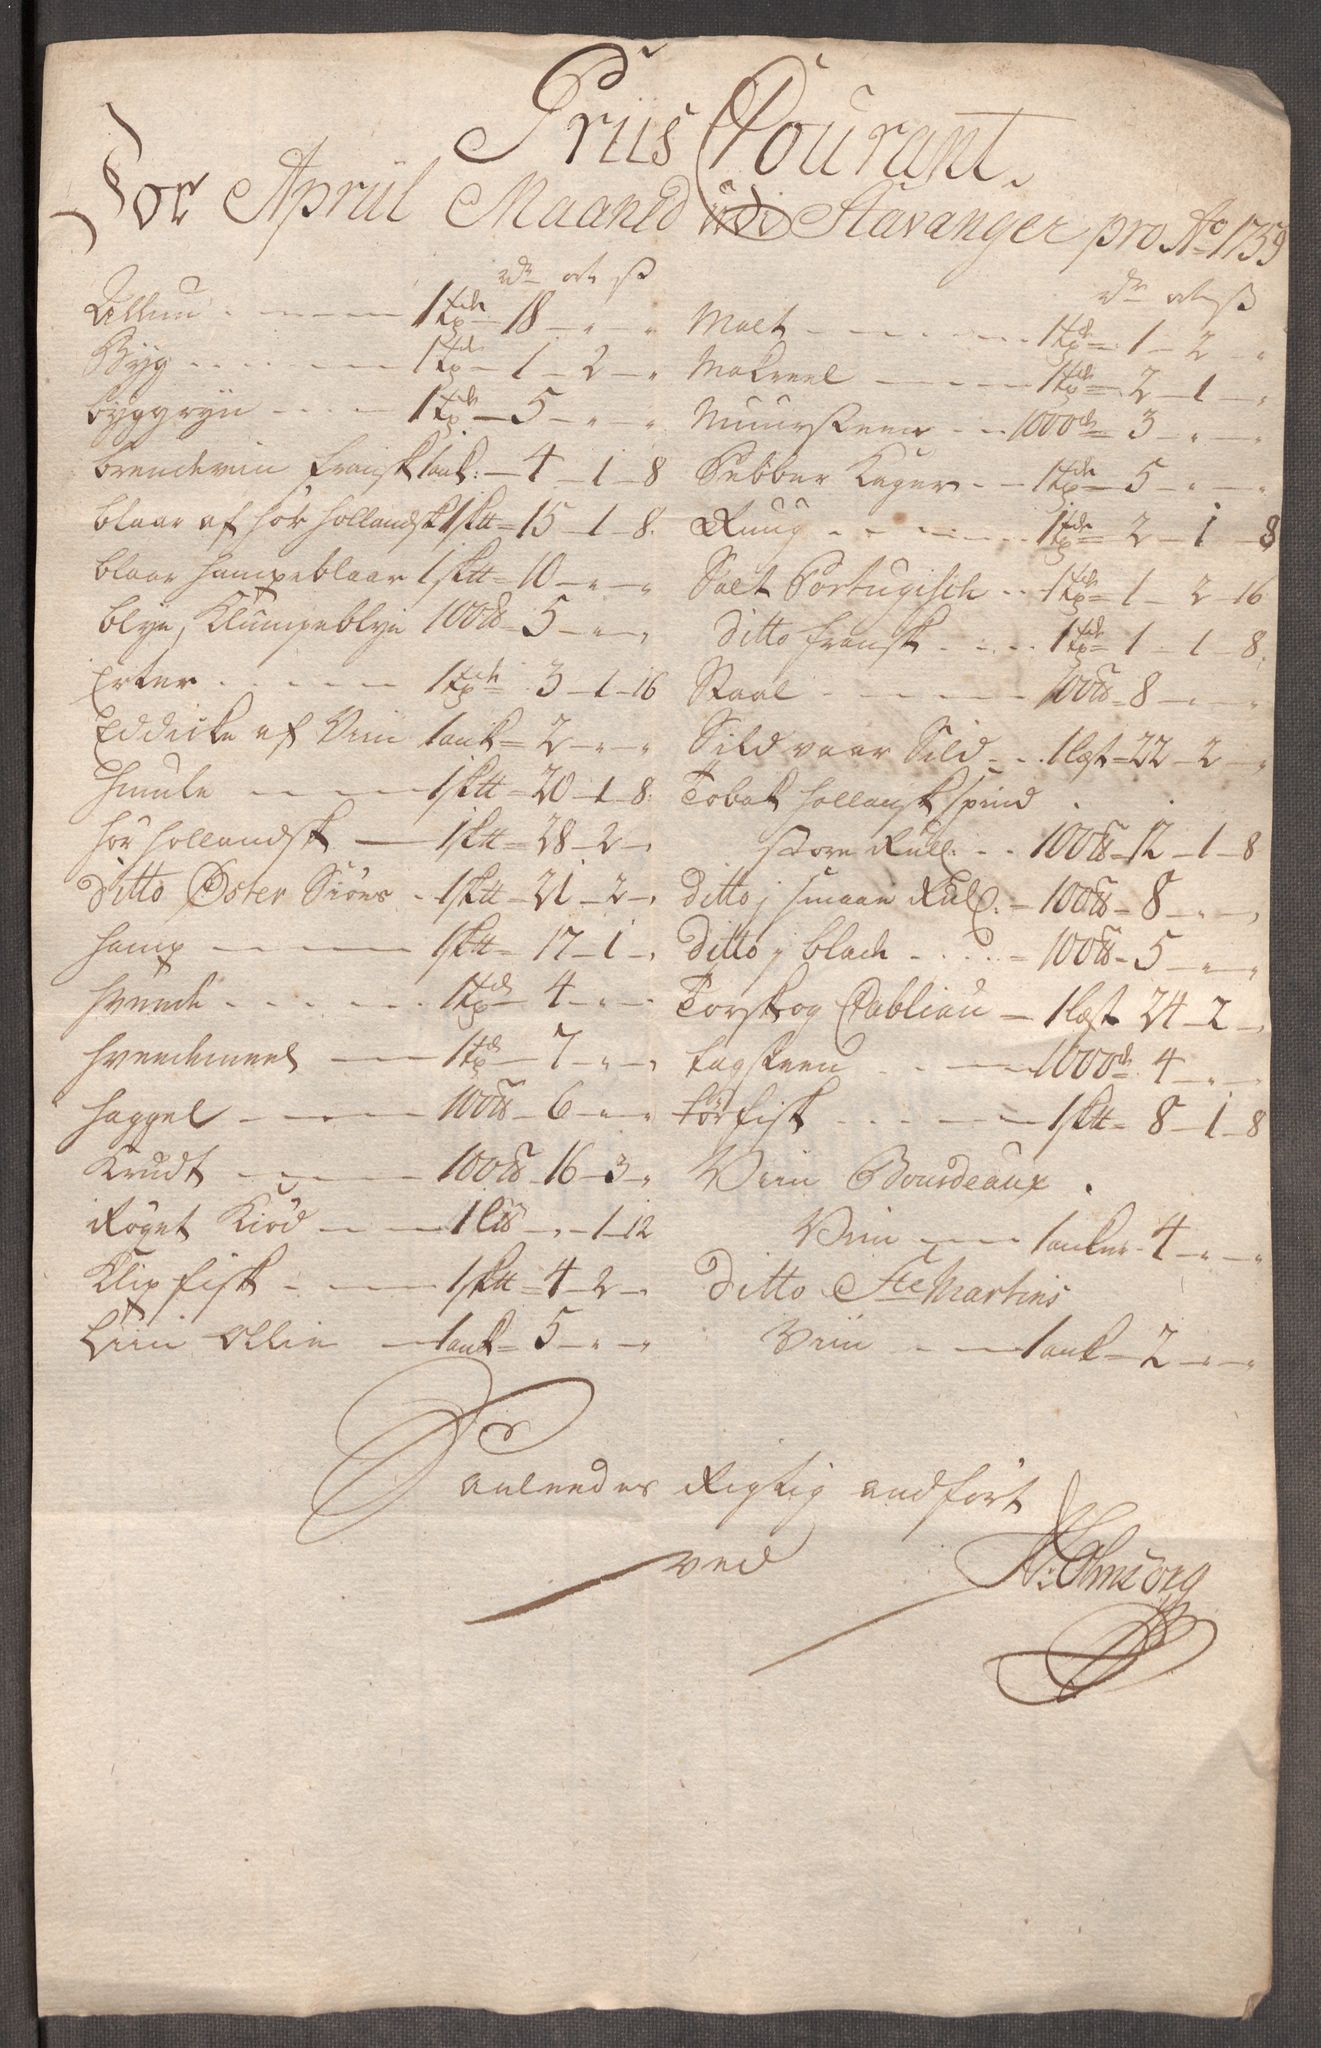 Priis Courant
For Apriil Maaned udi Stavanger pro Ao 1759
rdr ort ß
Alluun 1 tde 18 - " - "
Byg 1 tde 1 - 2 - "
byggryn 1 tde 5 - " - "
brendeviin fransk 1 ank: 4 - 1 - 8
blaar af hør hollandsk 1 sktt 15 - 1 - 8
blaar hampeblaar 1 sktt 10 - " - "
blye, Klumpeblye 100 ℔ 5 - " - "
Erter 1 tde 3 - 1 - 16
Eddicke af Viin 1 ank 2 - " - "
Humle 1 sktt 20 - 1 - 8
hør hollandsk 1 sktt 28 - 2 - "
Ditto Øster Siøes 1 sktt 21 - 2 - "
hamp 1 sktt 17 - 1 - "
hvede 1 tde 4 - " - "
hvedemeel 1 tde 7 - " - "
haggel 100 ℔ 6 - " - "
Krudt 100 ℔ 16 - 3 - "
Røget Kiød 1 L℔ " - 1 - 12
Klipfisk 1 sktt 4 - 2 - "
Liin Ollie 1 ank 5 - " - "
rdr ort ß
Malt 1 tde 1 - 2 - "
Makreel 1 tde 2 - 1 - "
Muursteen 1000de 3 - " - "
Pebber Kager 1 tde 5 - " - "
Ruug 1 tde 2 - 1 - 8
Salt Portugisch 1 tde 1 - 2 - 16
Ditto fransk 1 tde 1 - 1 - 8
Staal 100 ℔ 8 - " - "
Sild vaar Sild 1 Læst 22 - 2 - "
Tobak hollansk spind
store Rull: 100 ℔ 12 - 1 - 8
Ditto, smaae Rull: 100 ℔ 8 - " - "
Ditto, blade 100 ℔ 5 - " - "
Torsk og Cabliau 1 Læst 24 - 2 - "
tagsteen 1000de 4 - " - "
tørfisk 1 sktt 8 - 1 - 8
Viin Bourdeaux
Viin 1 anker 4 - " - "
Ditto Ste Martins
Viin 1 ank 2 - " - "
Saaleedes Rigtig andført
ved